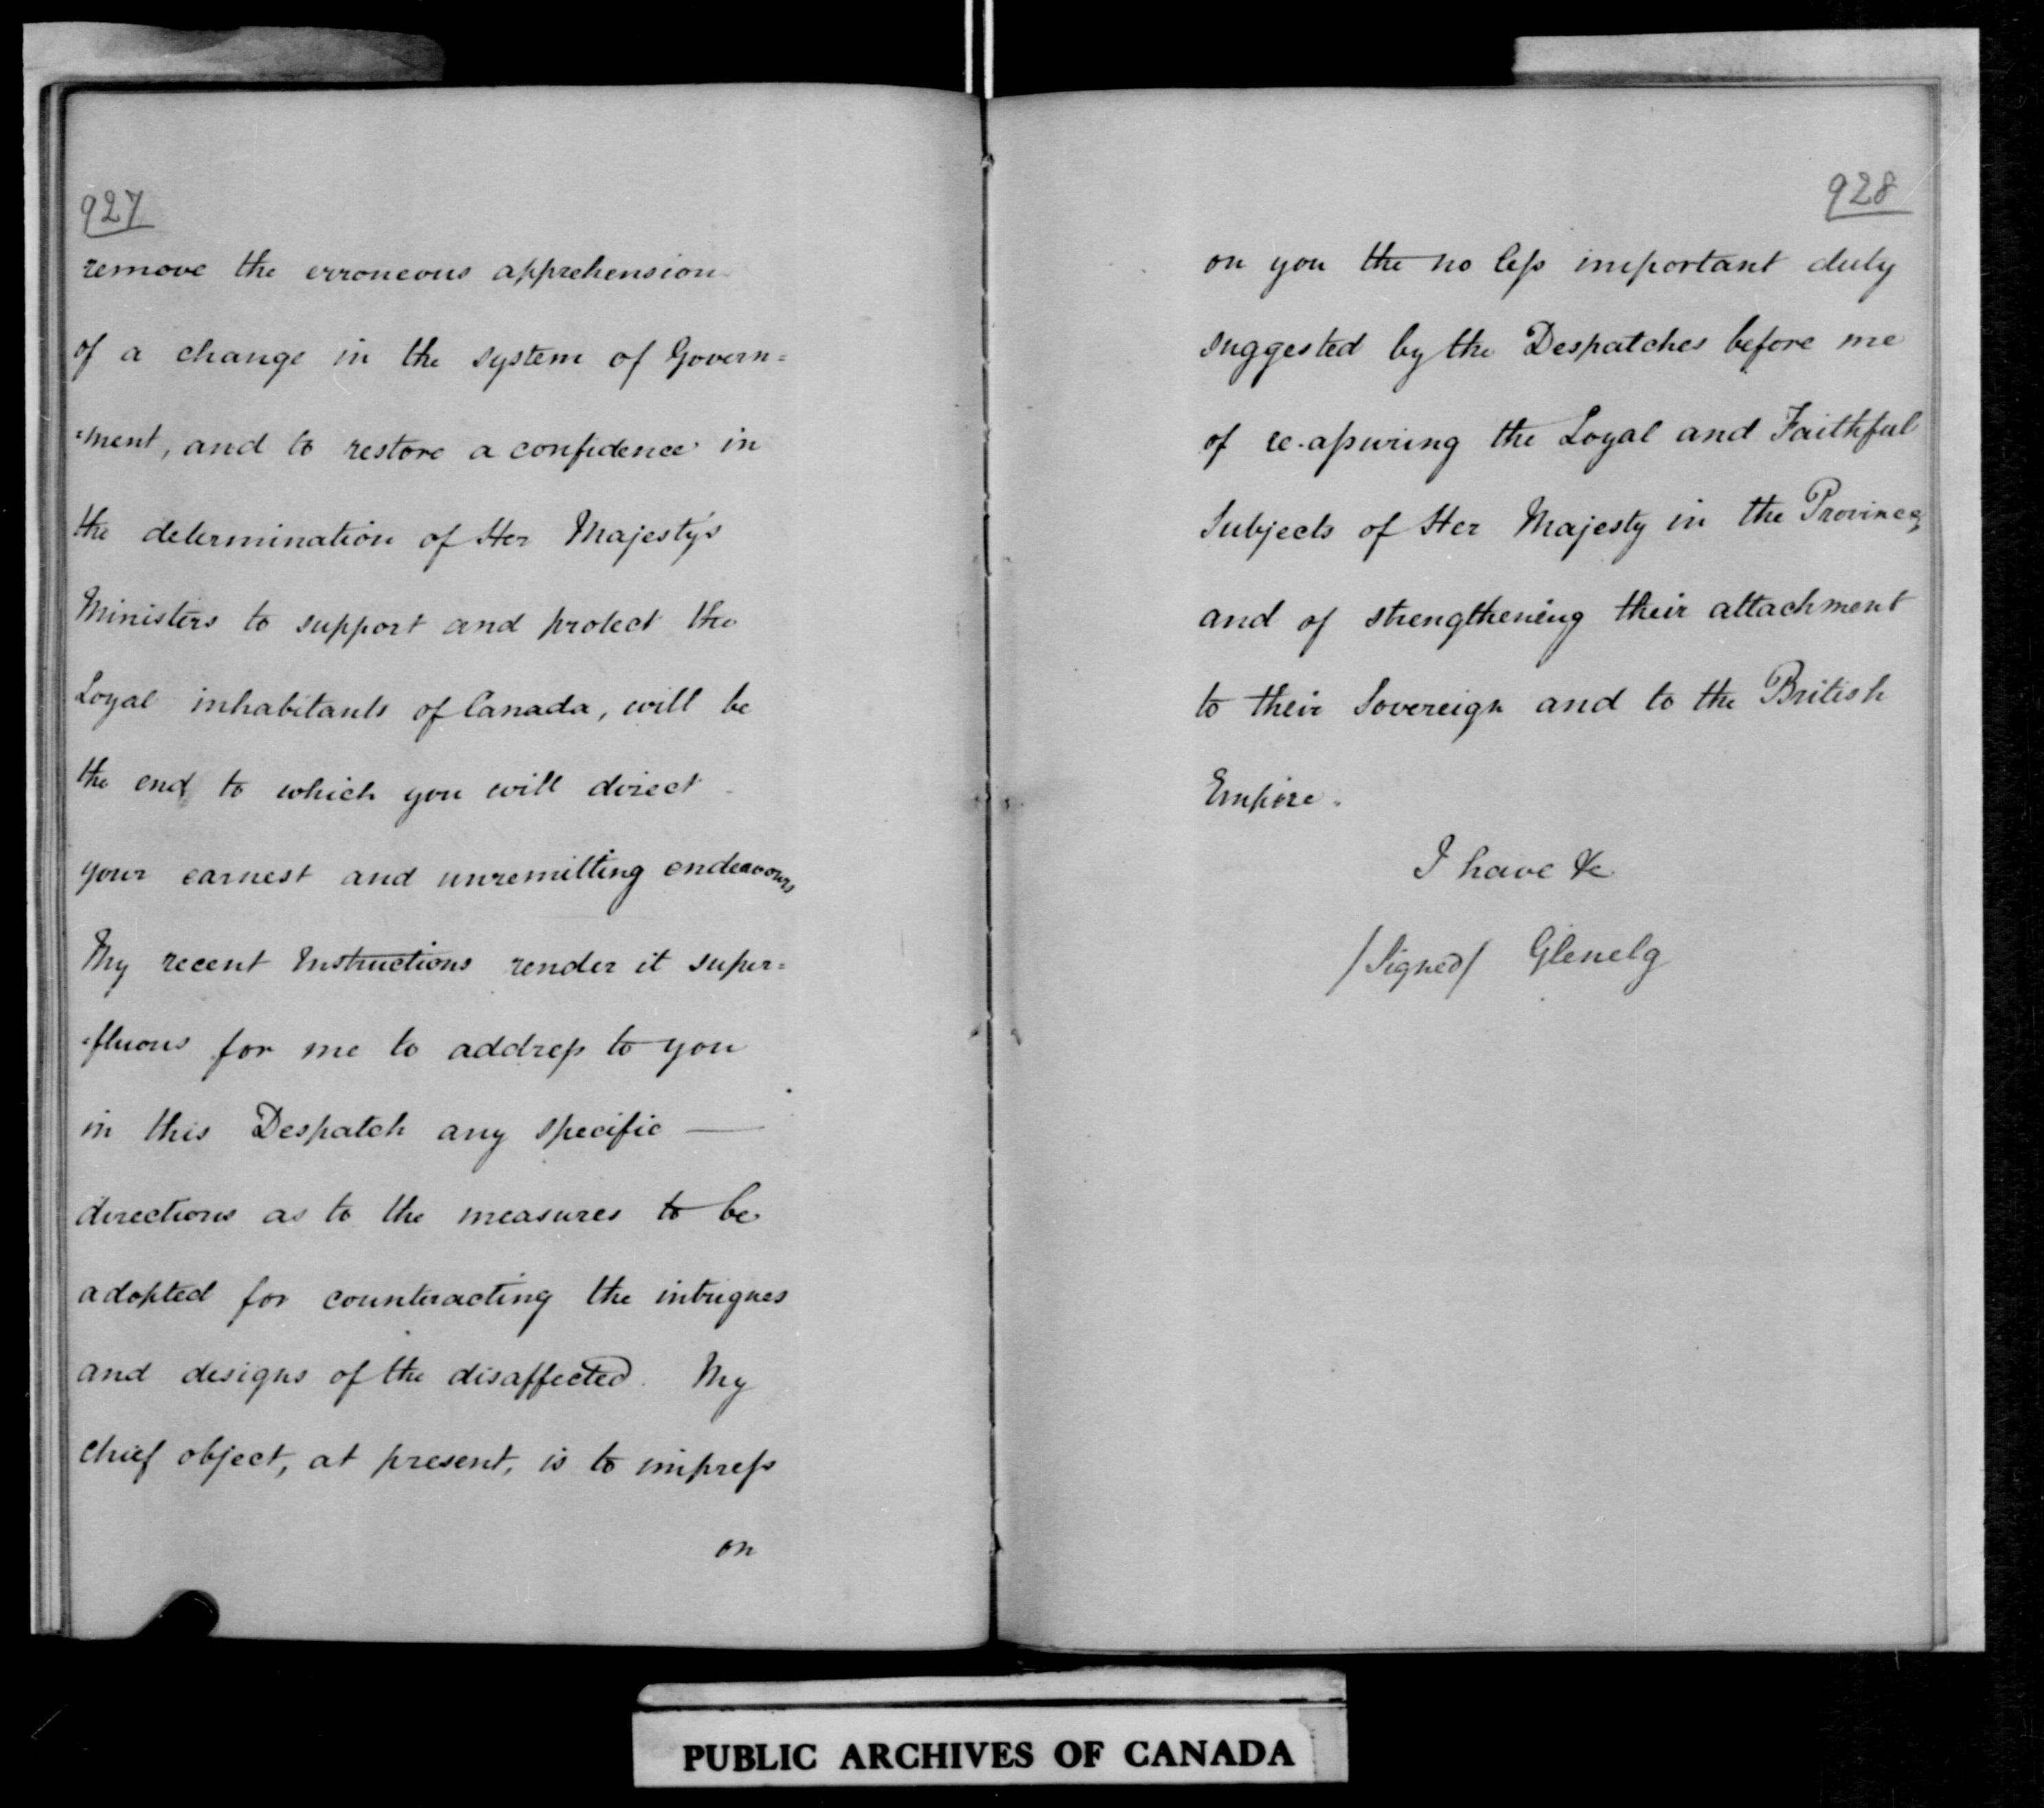 927
remove the erroneous apprehension
of a change in the system of Govern=
=ment, and to restore a confidence in
the determination of Her Majesty's
Ministers to support and protect the
Loyal inhabitants of Canada, will be
the end to which you will direct
your earnest and unremitting endeavours
My recent Instructions render it super=
=fluous for me to address to you
in this Despatch any specific —
directions as to the measures to be
adopted for counteracting the intrigues
and designs of the disaffected. My
chief object, at present, is to impress
on
928
on you the no less important duty
suggested by the Despatches before me
of re-assuring the Loyal and Faithful
Subjects of Her Majesty in the Provinces,
and of strengthening their attachment
to their Sovereign and to the British
Empire.
I have &c
/Signed/ Glenelg
PUBLIC ARCHIVES OF CANADA